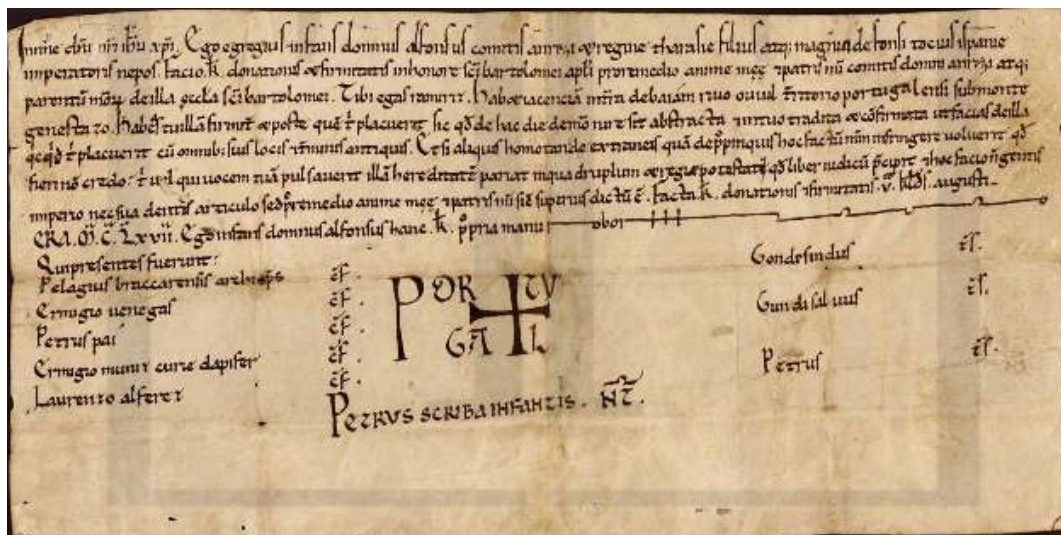 In nomine dni nri ihu xpi. Ego egregius infans domnus alfonsus comitis anrizi & regine tharasie filius atq; magni adefonsi tocius ispanie
imperatoris nepos. facio .k. donationis & firmitatis in honore sci bartolomei apli pro remedio anime meę & patris mei comitis domni anrizi atq;
parentum de illa sci bartolomei. Tibi egas ramirit. Habet iacenciam in riuo ouil territorio portugalensi sub monte
genestazo. habeas tu illa firmit & post te que tibi placuerit sic qd de hac die de meo iure sit abstracta in tuo tradita & confirmata ut facias de illa
tibi placuerit cu omnib; suis locis & terminis antiquis. Et si aliquis homo tam de extraneis quam de propinquis hoc factum infringere voluerit qd
fieri non credo: t ul qui vocem tuam pulsaverit illam hereditate pariat in quadruplum & regie potestati qd liber iudicum hoc facio gentis
imperio nec articulo sed pro remedio anime meę & patris mei sicut superius dictum est. facta .k. donationis & firmitatis .v. klds. augusti
ERA. M. C. Lxvii. Ego infans domnus alfonsus hanc .k. propria manu roboro
Qui presentes fuerunt:
Pelagius braccarensis archieps cf.
Ermigio uenegas cf.
Petrus pai cf.
Ermigio muniz curie dapifer cf.
Laurenzo alferez cf.
PORTUGAL
Gondesindus ts.
Gundisaluus ts.
Petrus ts.
PETRVS SCRIBA INFANTIS. NT.